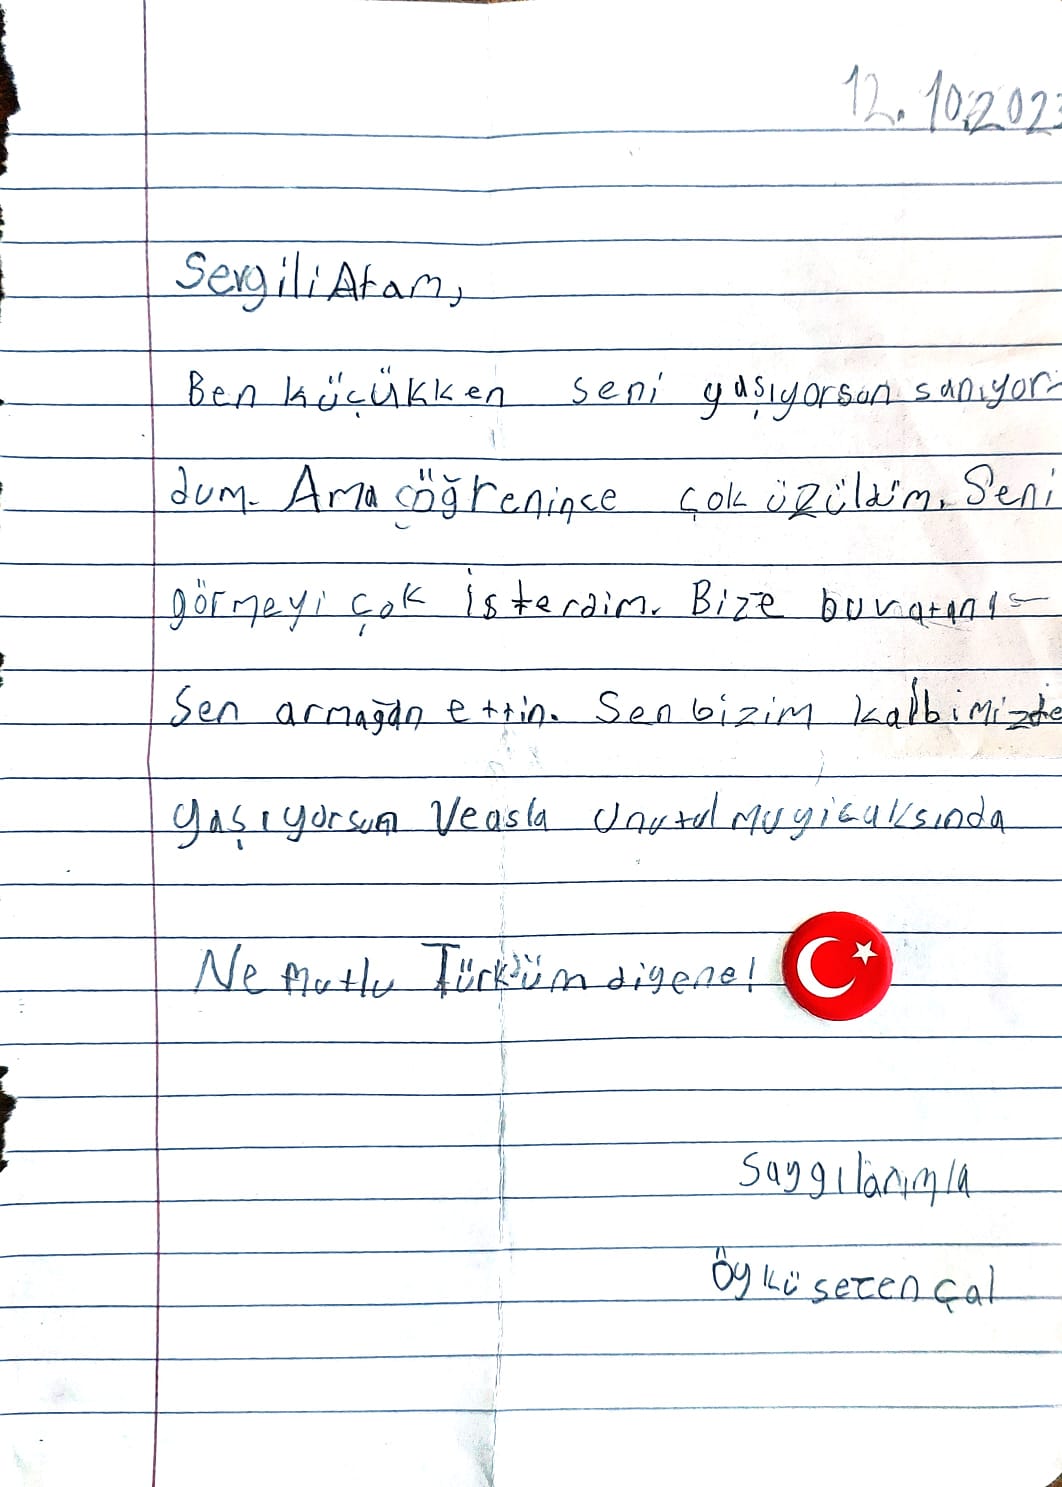 12.10.202
Sevgili Atam,
Ben küçükken seni yaşıyorsun sanıyor-
dum. Ama çöğrenince çok üzüldüm. Seni
görmeyi çok isterdim. Bize bu vatanı
Sen armağan ettin. Sen bizim kalbimizde
yaşıyorsun Ve asla Unutulmuyicaksında
Ne Mutlu Türküm diyene!
Saygılarımla
Öykü seren çal